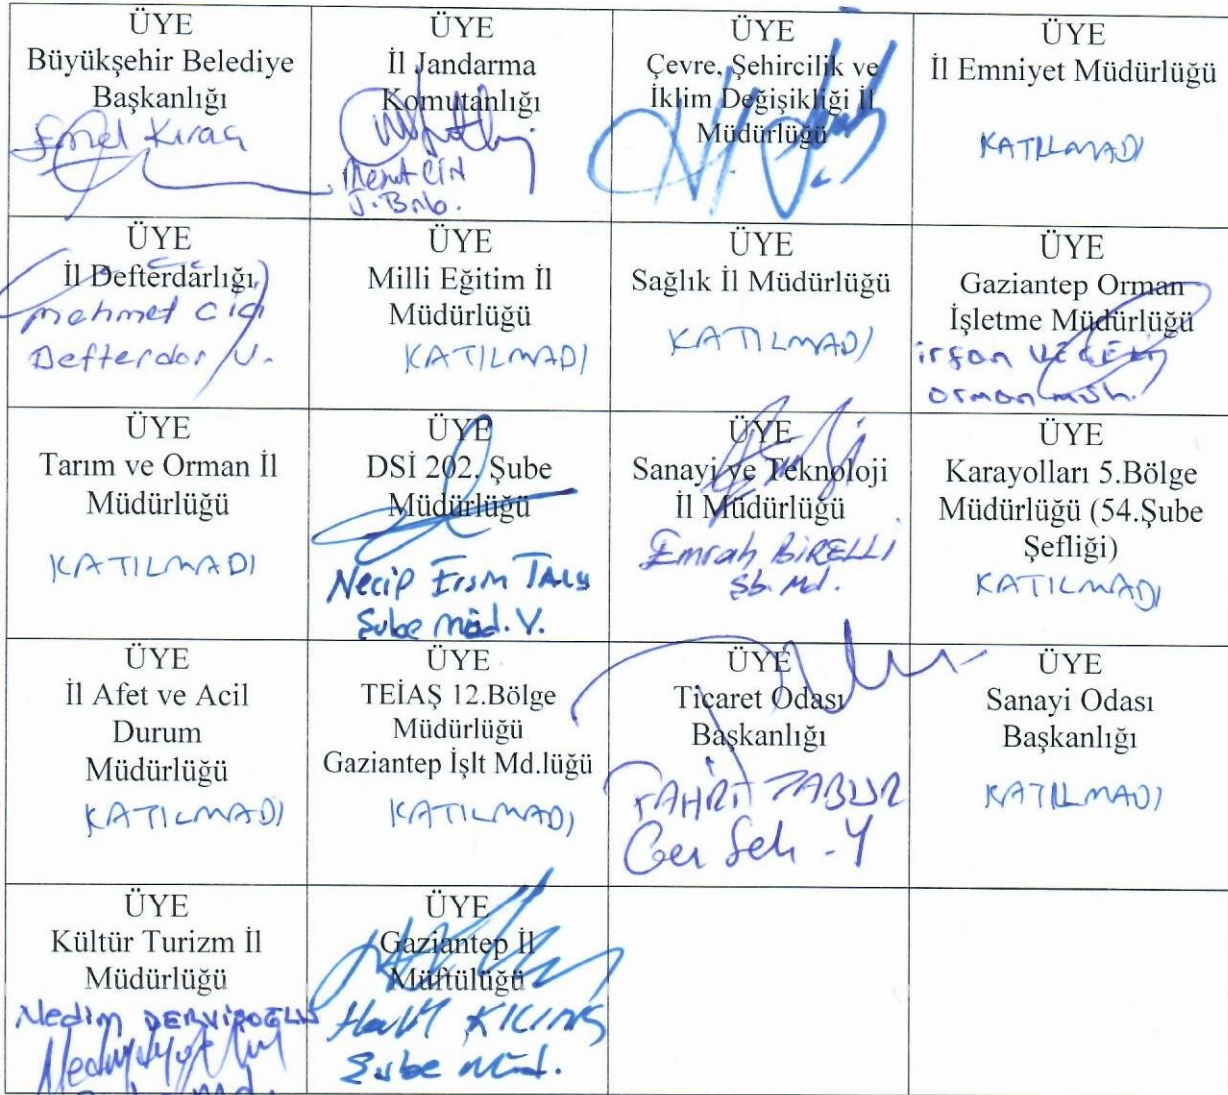 ÜYE
Büyükşehir Belediye
Başkanlığı
Emel Kıraç
ÜYE
İl Jandarma
Komutanlığı
CİN
J. Bnb.
ÜYE
Çevre, Şehircilik ve
İklim Değişikliği İl
Müdürlüğü
ÜYE
İl Emniyet Müdürlüğü
KATILMADI
ÜYE
İl Defterdarlığı
Mehmet
Defterdar V.
ÜYE
Milli Eğitim İl
Müdürlüğü
KATILMADI
ÜYE
Sağlık İl Müdürlüğü
KATILMADI
ÜYE
Gaziantep Orman
İşletme Müdürlüğü
irfan
orman müh.
ÜYE
Tarım ve Orman İl
Müdürlüğü
KATILMADI
ÜYE
DSİ 202. Şube
Müdürlüğü
Necip
Şube Müd. V.
ÜYE
Sanayi ve Teknoloji
İl Müdürlüğü
Emrah BİRELLİ
Şb. Md.
ÜYE
Karayolları 5.Bölge
Müdürlüğü (54.Şube
Şefliği)
KATILMADI
ÜYE
İl Afet ve Acil
Durum
Müdürlüğü
KATILMADI
ÜYE
TEİAŞ 12.Bölge
Müdürlüğü
Gaziantep İşlt Md.lüğü
KATILMADI
ÜYE
Ticaret Odası
Başkanlığı
Gen Sek. Y
ÜYE
Sanayi Odası
Başkanlığı
KATILMADI
ÜYE
Kültür Turizm İl
Müdürlüğü
Nedim DERVİŞOĞLU
ÜYE
Gaziantep İl
Müftülüğü
KILINÇ
Şube Müd.